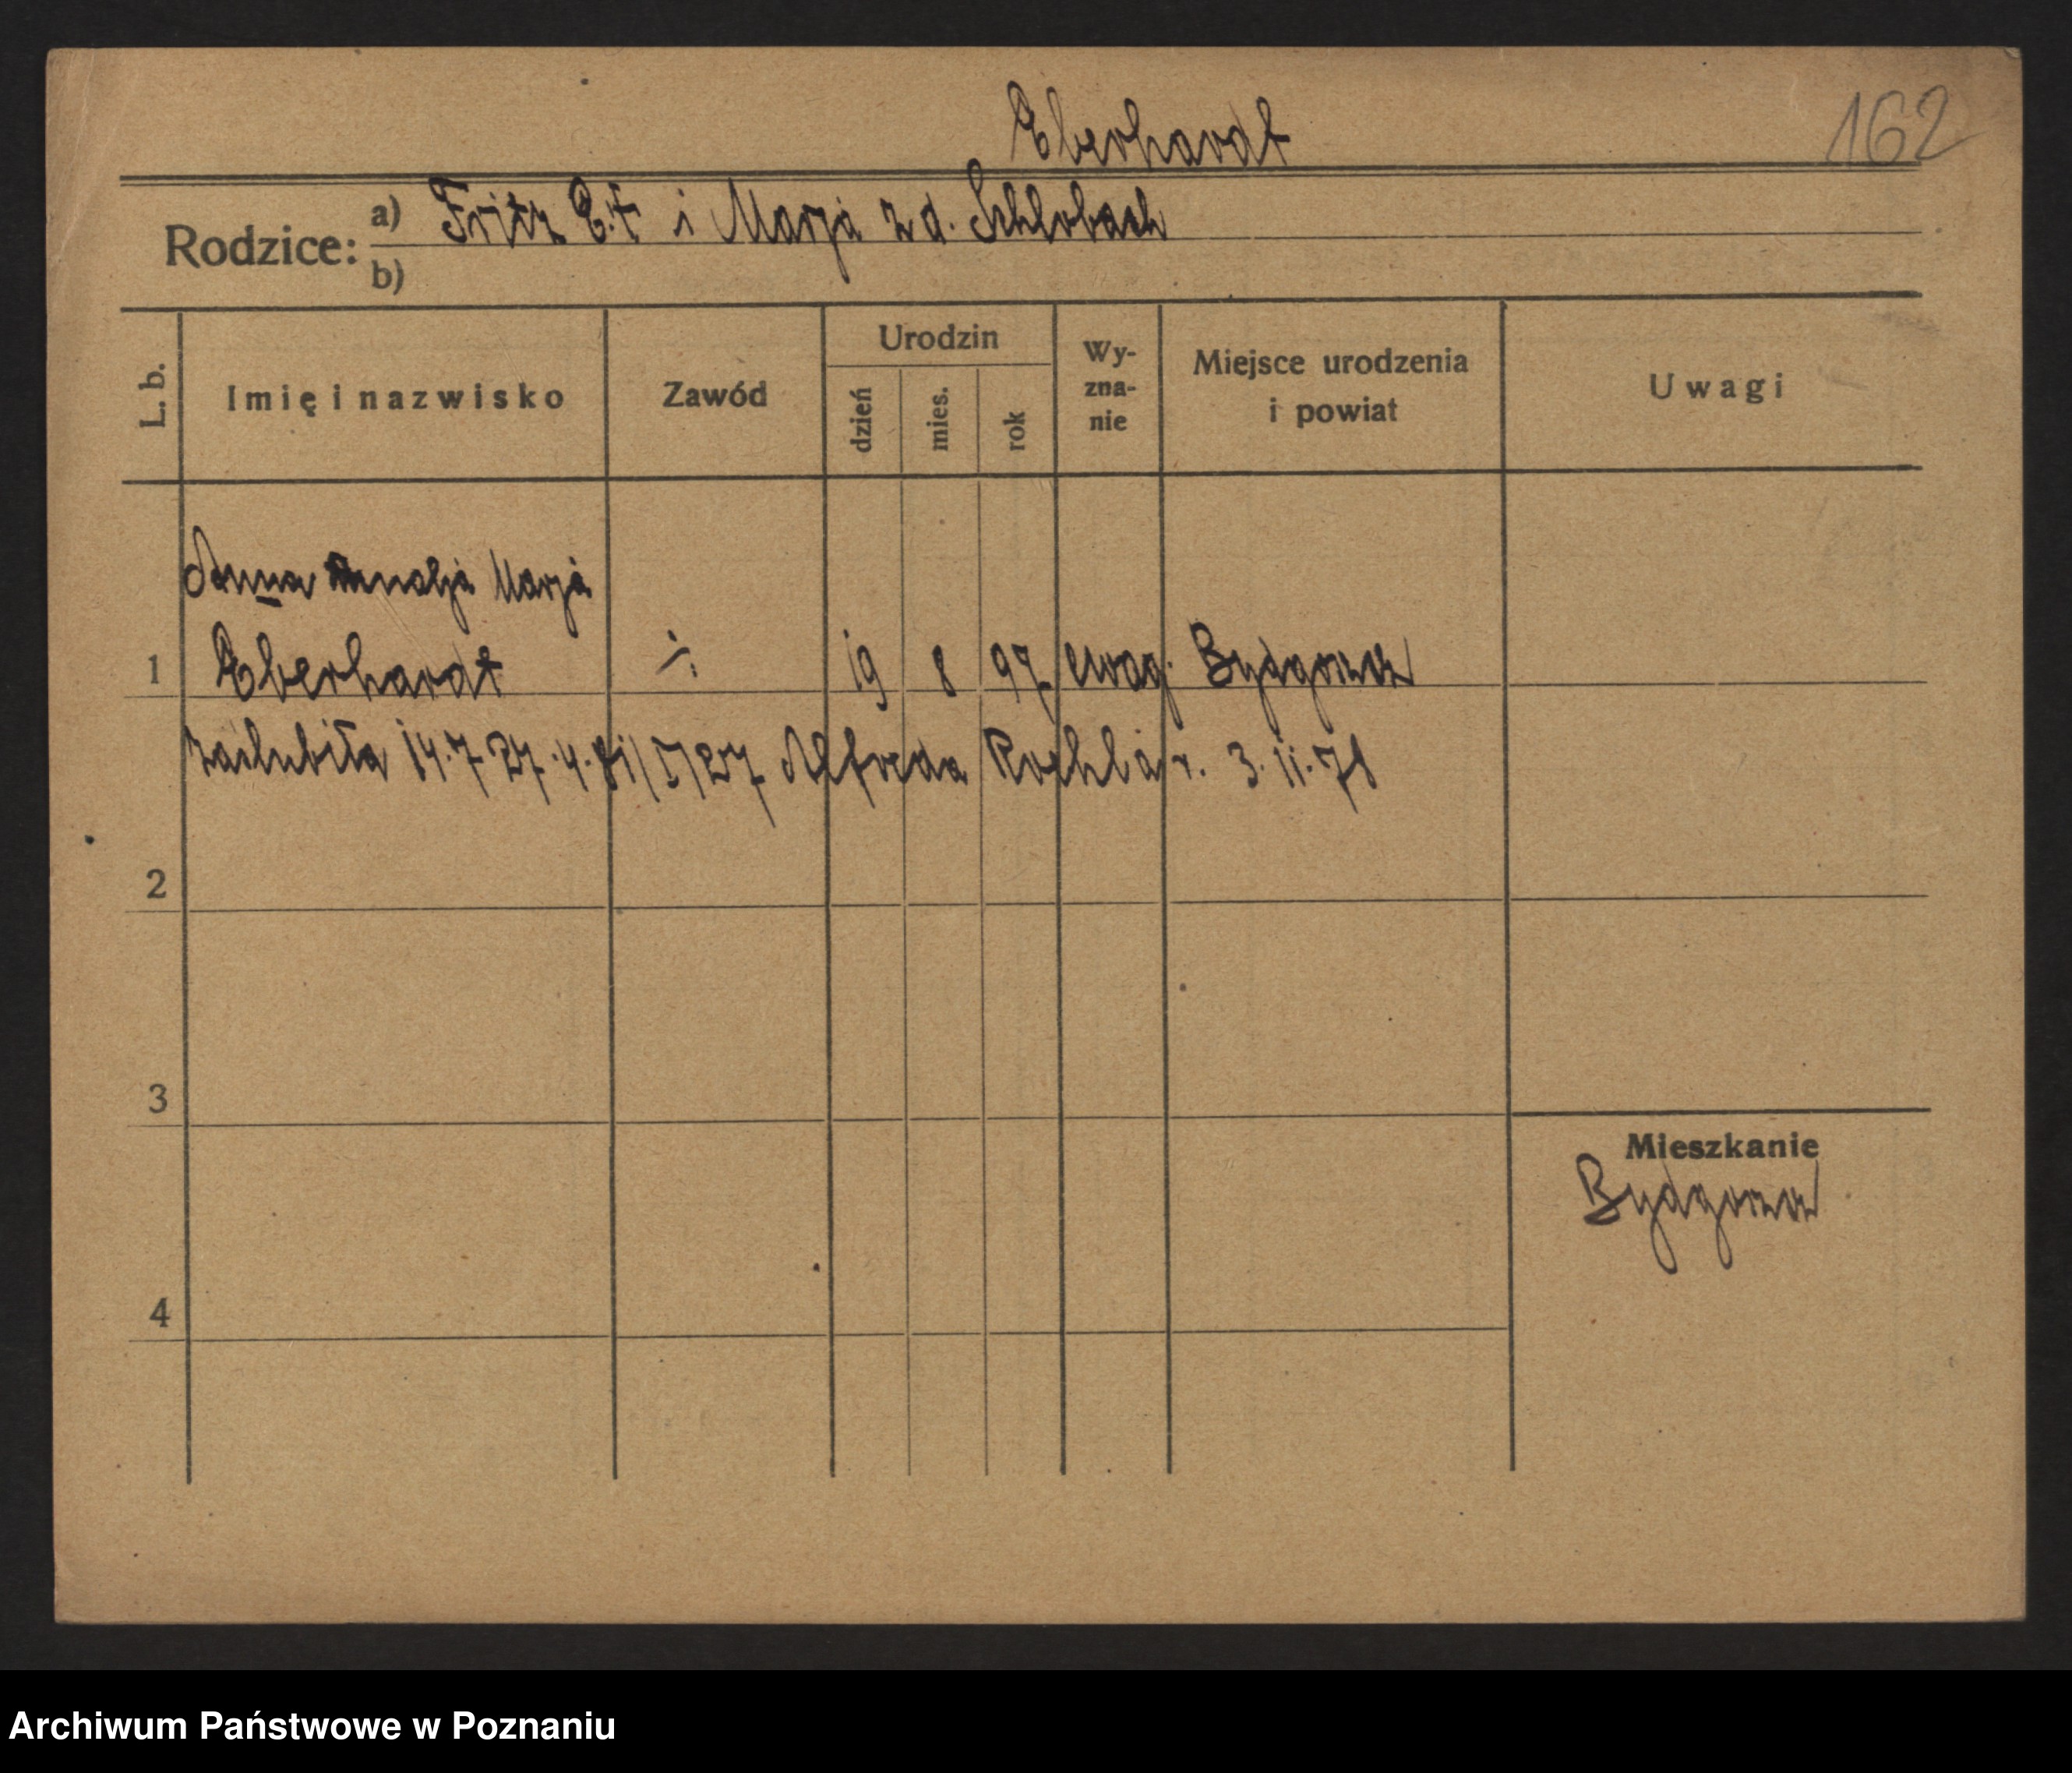 Eberhardt
162
Rodzice:
a) Fritz E.t i Marja z d. Schlobach
b)
L. b.
Imię i nazwisko
Zawód
Urodzin
dzień
mies.
rok
Wy-
zna-
nie
Miejsce urodzenia
i powiat
Uwagi
Anna Amalja Marja
1 Eberhardt ÷ 19 8 97 ewag. Bydgoszcz
zaślubiła 14.7.27. Alfreda r. 3.11.78
2
3
Mieszkanie
Bydgoszcz
4
Archiwum Państwowe w Poznaniu